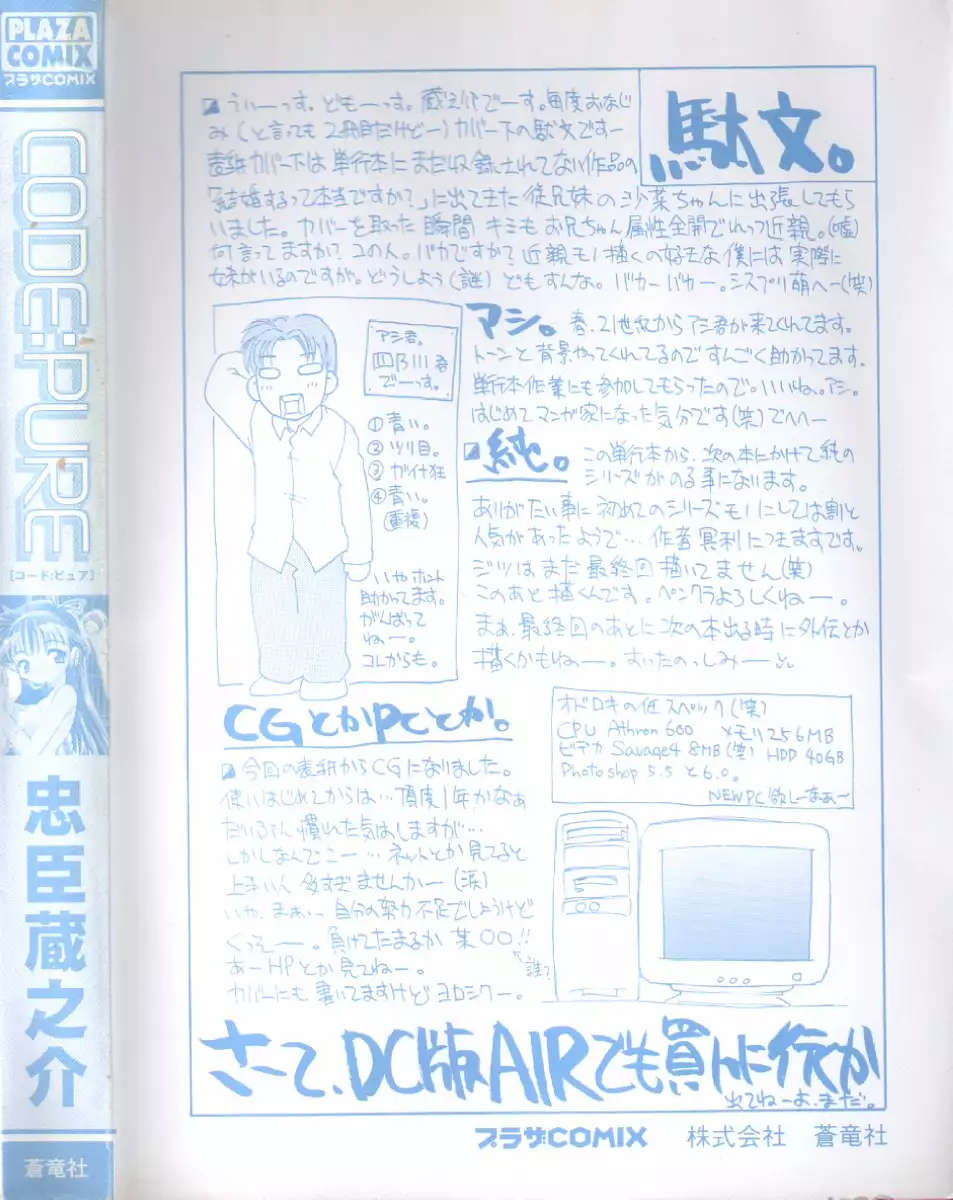 PLAZA
COMIX
プラザCOMIX
CODE:PURE
[コード:ピュア]
忠臣蔵之介
蒼竜社
駄文。
うぃーっす。どもーっす。蔵之介でーす。毎度おなじ
み(と言っても2冊目だけどー)カバー下の駄文ですー
表紙カバー下は単行本にまだ収録されてない作品の
「結婚するって本当ですか?」に出てきた従兄妹の沙菜ちゃんに出張してもら
いました。カバーを取った瞬間 キミもお兄ちゃん属性全開でれっつ近親。(嘘)
何言ってますか?この人。バカですか?近親モノ描くの好きな僕には実際に
妹がいるのですが。どうしよう(謎)どもすんな。バカーバカー。シスプリ萌へー(笑)
アシ。
春、21世紀からアシ君が来てくれてます。
トーンと背景やってくれてるのですんごく助かってます。
単行本作業にも参加してもらったので。いいね。アシ。
はじめてマンガ家になった気分です(笑)でへへー
アシ君。
四B川君
でーっす。
①青い。
②ツリ目。
③ガイナ狂
④青い。
(重複)
いやホント
助かってます。
がんばって
ねー。
コレからも。
純。
この単行本から、次の本にかけて純の
シリーズがのる事になります。
ありがたい事に初めてのシリーズモノにしては割と
人気があったようで… 作者冥利につきますです。
ジツはまだ最終回描いてません(笑)
このあと描くんです。ペンクラよろしくねー。
まぁ、最終回のあとに次の本出る時に外伝とか
描くかもねー。おったのっしみー
CGとかPCとか。
今回の表紙からCGになりました。
使いはじめてからは…頂度1年かなぁ
だいぶん慣れた気はしますが…
しかしなんでこー…ネットとか見てると
上手い人多すぎませんかー(涙)
いや、まぁ…自分の努力不足でしょうけど
くっそー。負けてたまるか某○○!!
誰?
あーHPとか見てねー。
カバーにも書いてますけどヨロシクー。
オドロキの低スペック(笑)
CPU Athron 600 メモリ256MB
ビデカ Savage4 8MB(笑) HDD 40GB
Photoshop 5.5と6.0。
NEW PC欲しーなぁー
さーて、DC版AIRでも買いに行くか
出てねーよ、まだ。
プラザCOMIX 株式会社 蒼竜社